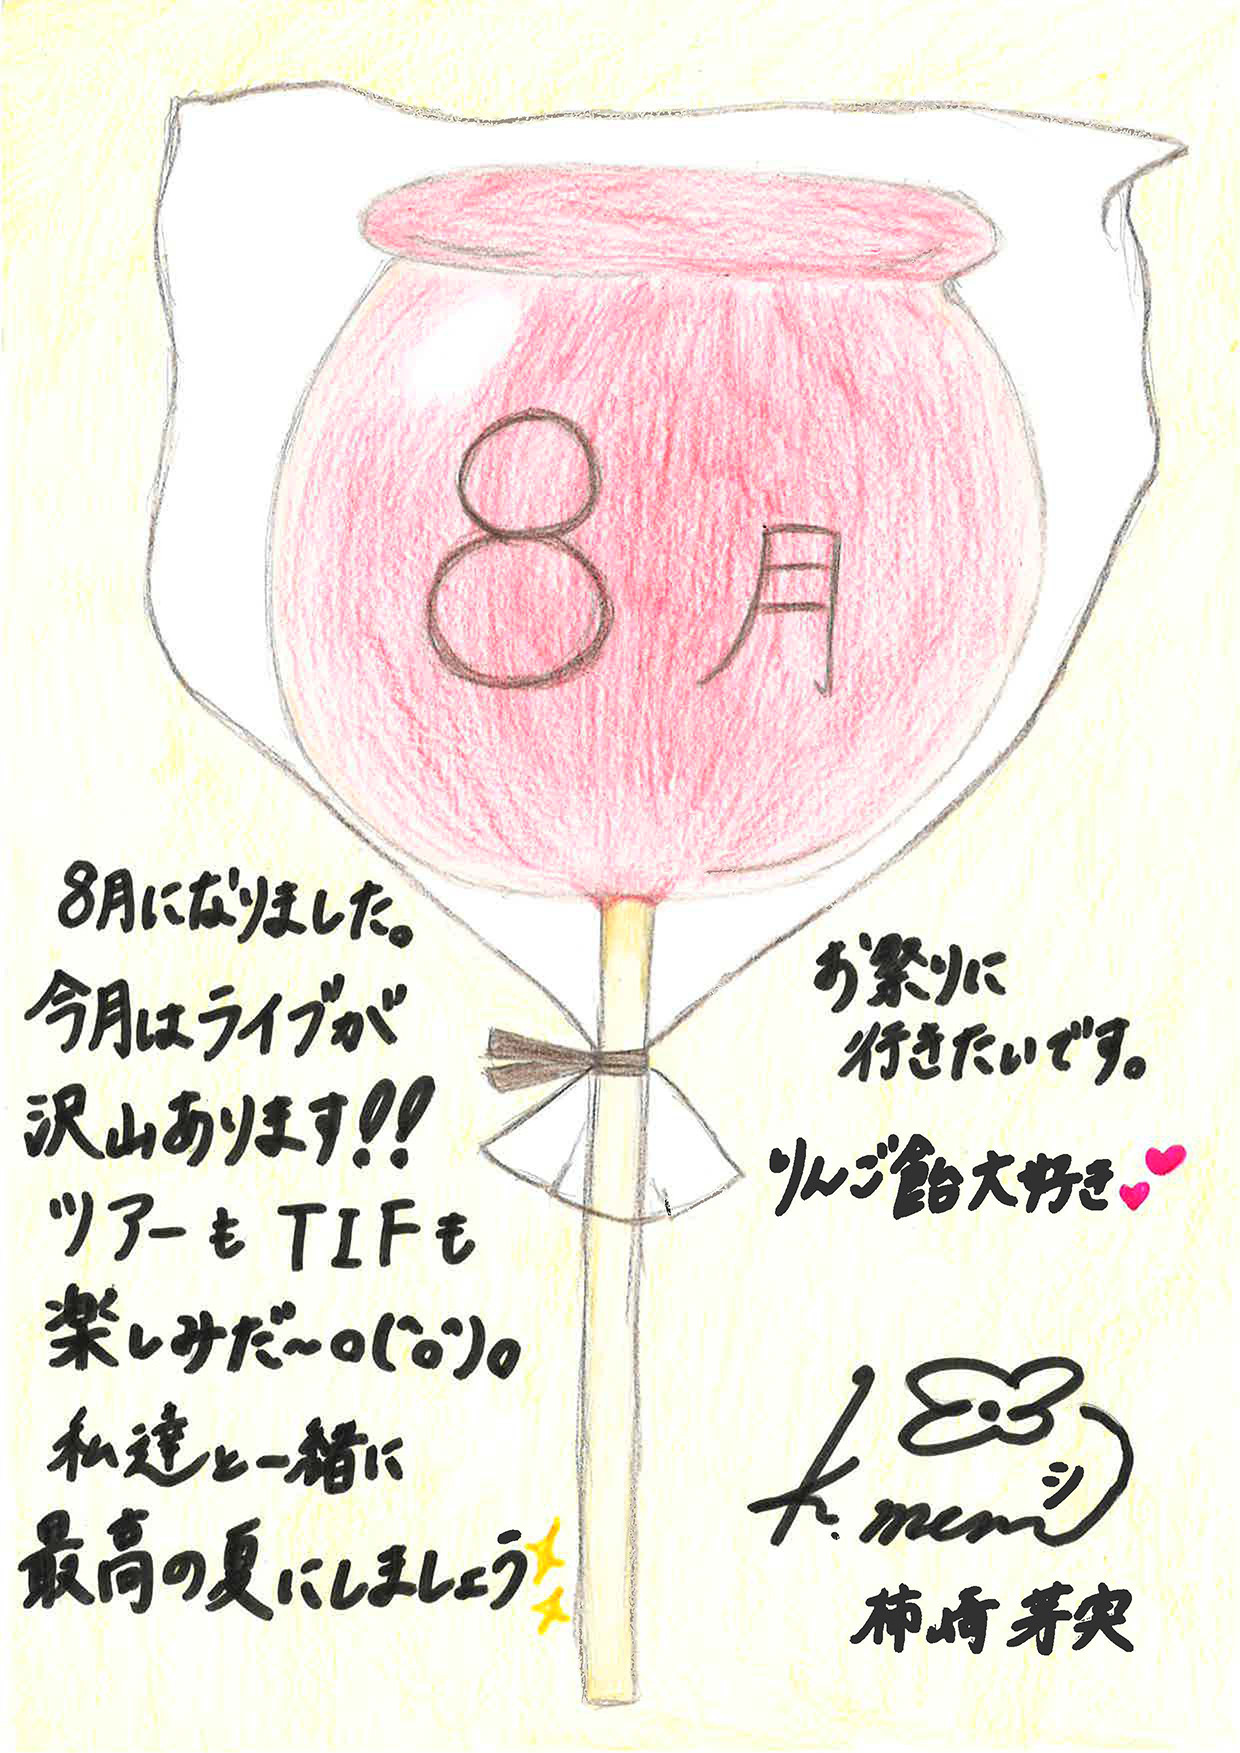 8月
8月になりました。
今月はライブが
沢山あります!!
ツアーも TIFも
楽しみだ〜o(^o^)o
私達と一緒に
最高の夏にしましょう
お祭りに
行きたいです。
りんご飴大好き
K.memi
柿崎芽実